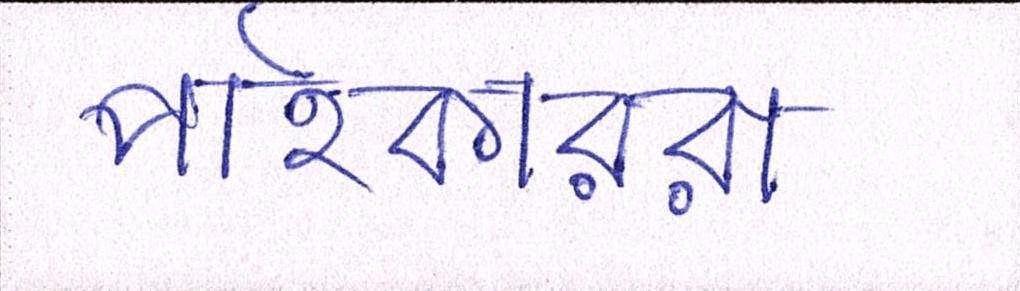 পাইকাররা